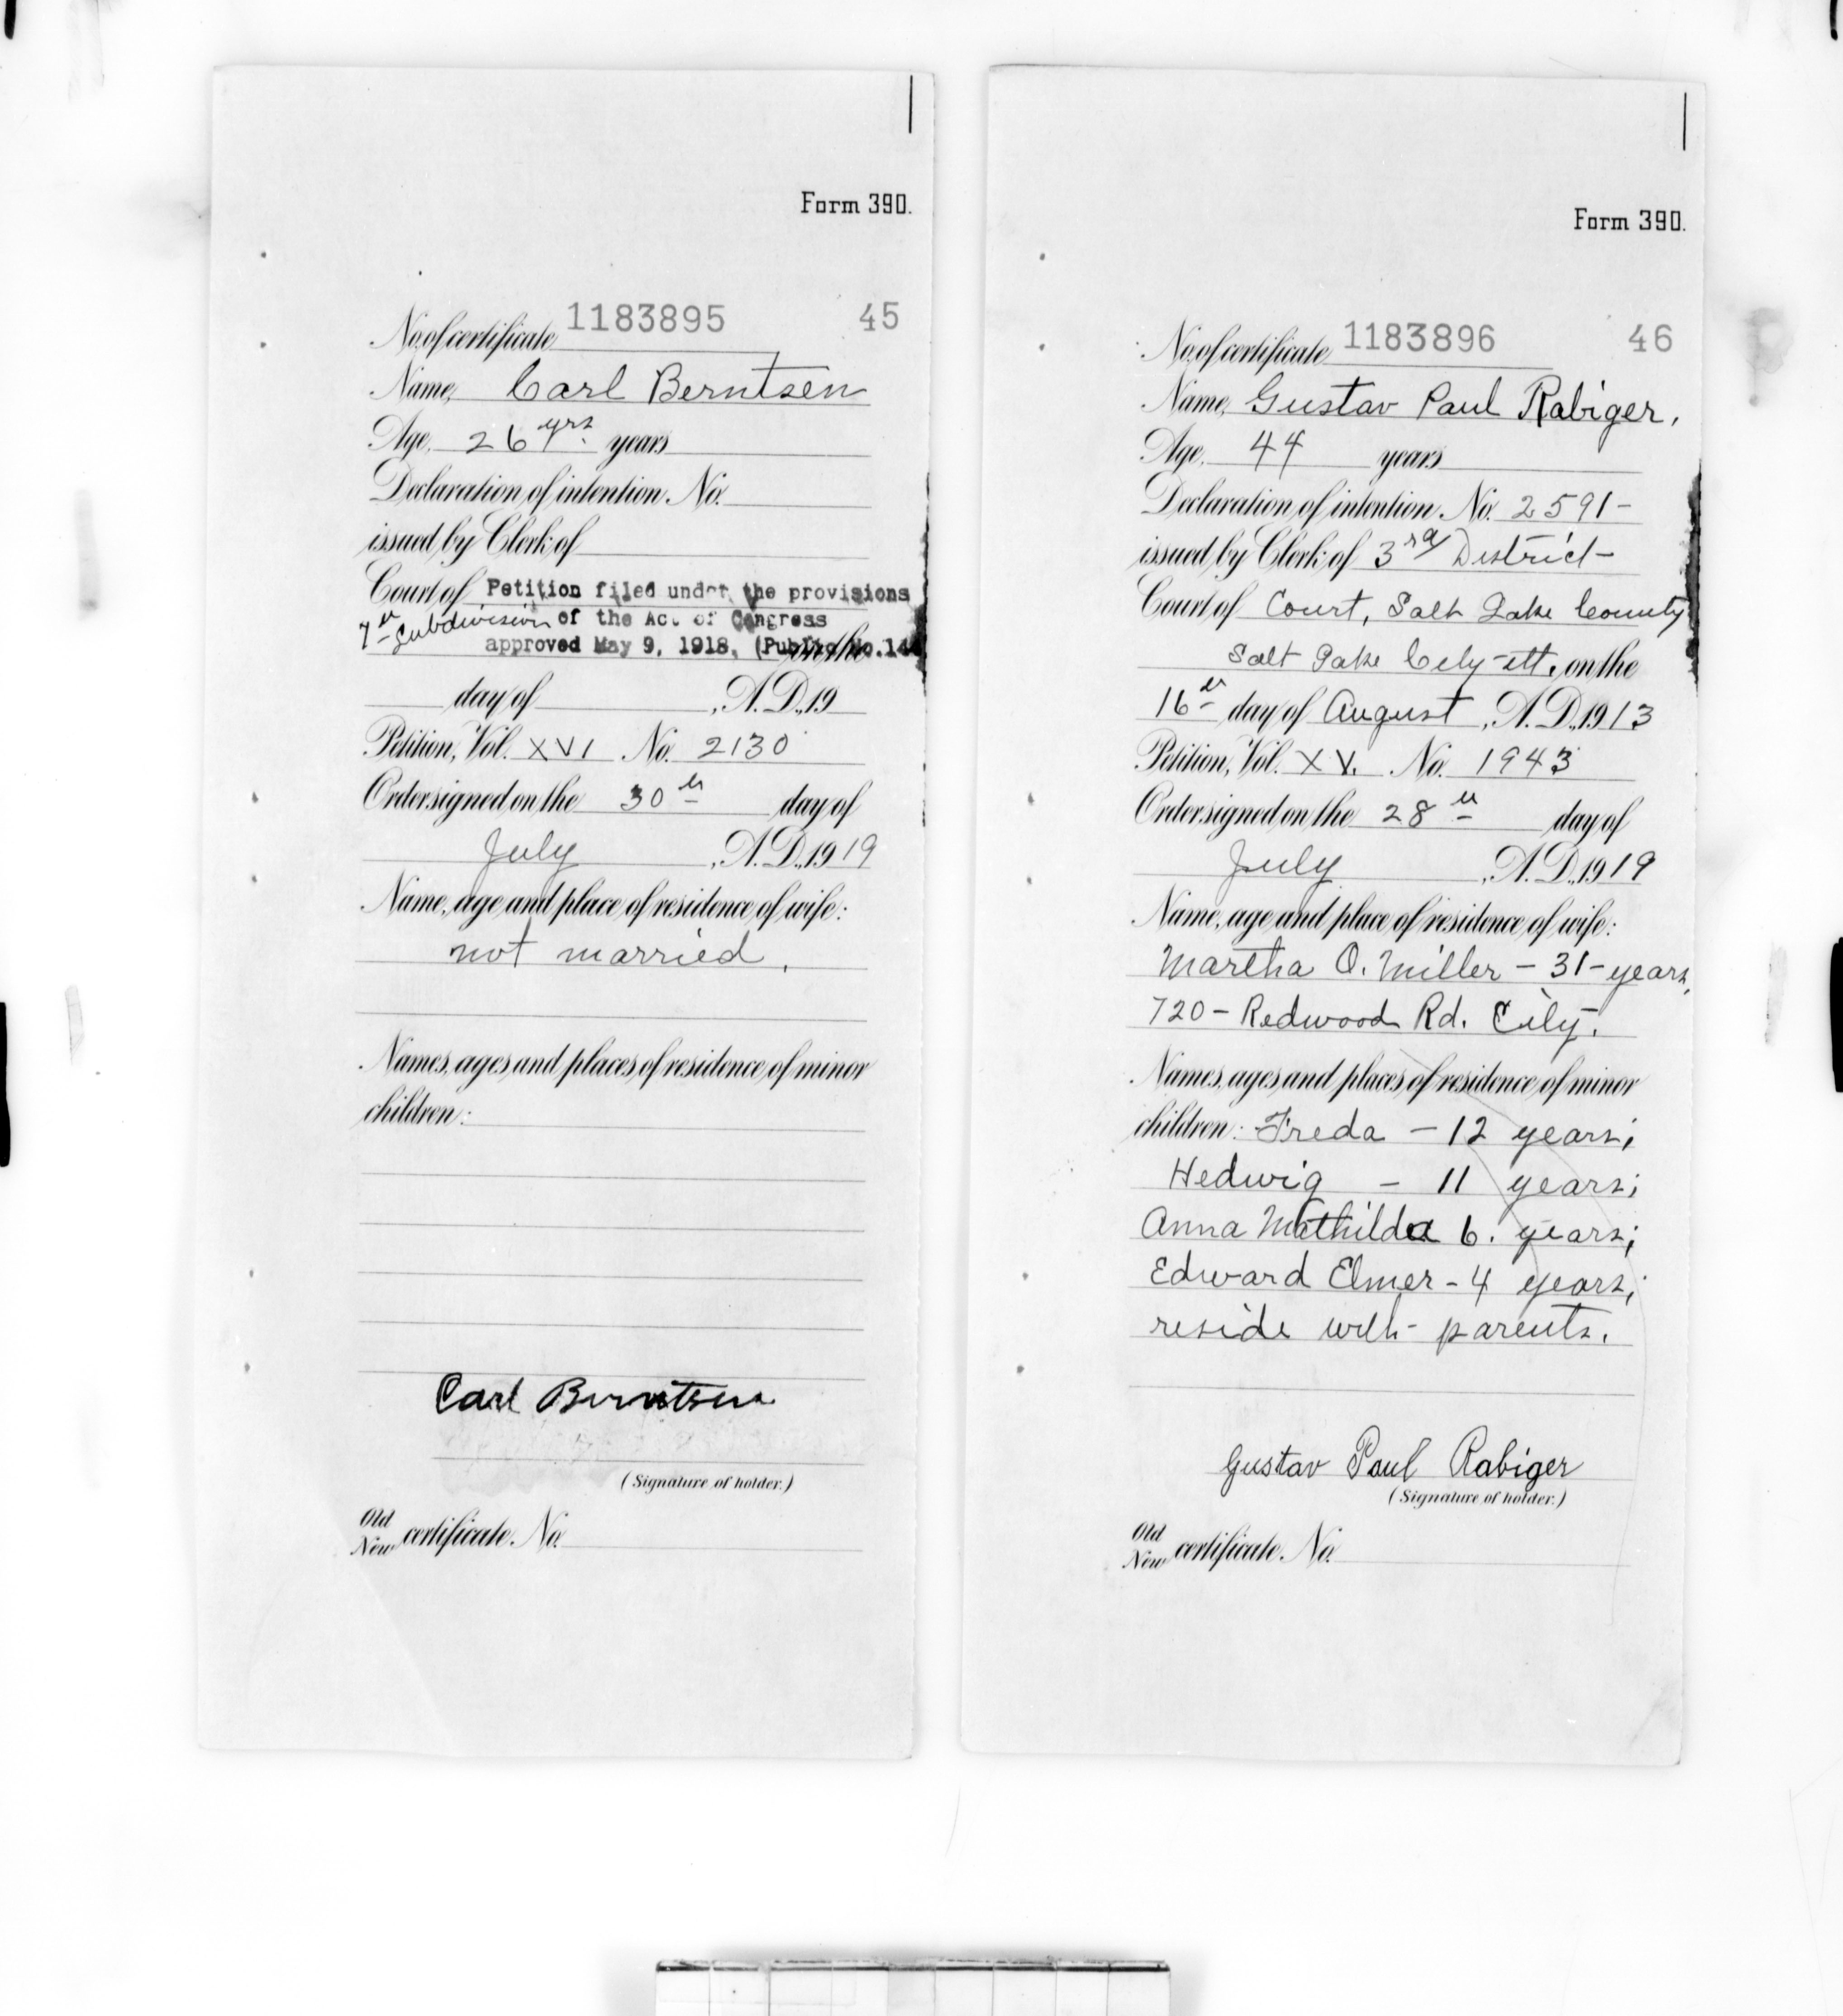 Form 390.
No. of certificate 1183895 45
Name, Carl Berntsen
Age, 26 yrs. years
Declaration of intention No.
issued by Clerk of
Court of Petition filed under the provisions
7th Subdivision of the Act of Congress
approved May 9, 1918, (Public No. 144
on the
day of , A.D., 19
Petition, Vol. XVI No. 2130
Order signed on the 30th day of
July , A.D., 1919
Name, age and place of residence of wife:
not married.
Names, ages and places of residence of minor
children:
Carl Berntsen
(Signature of holder.)
Old
New certificate No.
Form 390.
No. of certificate 1183896 46
Name, Gustav Paul Rabiger,
Age, 44 years
Declaration of intention No. 2591-
issued by Clerk of 3rd District-
Court of Court, Salt Lake County
Salt Lake City-Ut. on the
16th day of August , A.D., 1913
Petition, Vol. XV. No. 1943
Order signed on the 28th day of
July , A.D., 1919
Name, age and place of residence of wife:
Martha O. Miller - 31-years,
720- Redwood Rd. City.
Names, ages and places of residence of minor
children: Freda - 12 years;
Hedwig - 11 years;
Anna Mathilda 6. years;
Edward Elmer - 4 years;
reside with parents.
Gustav Paul Rabiger
(Signature of holder.)
Old
New certificate No.